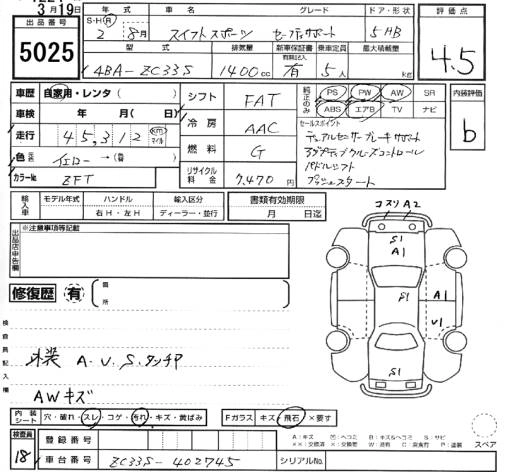 3月19日
出品番号 5025
年式 S・H・R 2 8月
車名 スイフトスポーツ
グレード セーフティサポート
ドア・形状 5HB
評価点 4.5
型式 4BA-ZC33S
排気量 1400cc
新車保証書 有
乗車定員 5人
最大積載量 kg
車歴 自家用・レンタ( )
車検 年 月( )
走行 45,312 km マイル
色 イエロー→(替)
カラーNo. ZFT
シフト FAT
冷房 AAC
燃料 G
リサイクル料金 7,470円
純正のみ PS PW AW SR
ABS エアB TV ナビ
内装評価 b
セールスポイント
デュアルセンサーブレーキサポート
アダプティブクルーズコントロール
パドルシフト
プッシュスタート
輸入車 モデル年式 ハンドル 右H・左H 輸入区分 ディーラー・並行
書類有効期限 月 日迄
出品店申告欄 ※注意事項等記載
修復歴 有 箇所
コスリA2
S1
A1
S1
A1
V1
検査員記入欄
外装 A.U.S.タッチP
AWキズ
内装シート 穴・破れ・スレ・コゲ・汚れ・キズ・黄ばみ
Fガラス キズ・飛石・×要す
検査員 18
登録番号
車台番号 ZC33S-402745
シリアルNo.
スペア